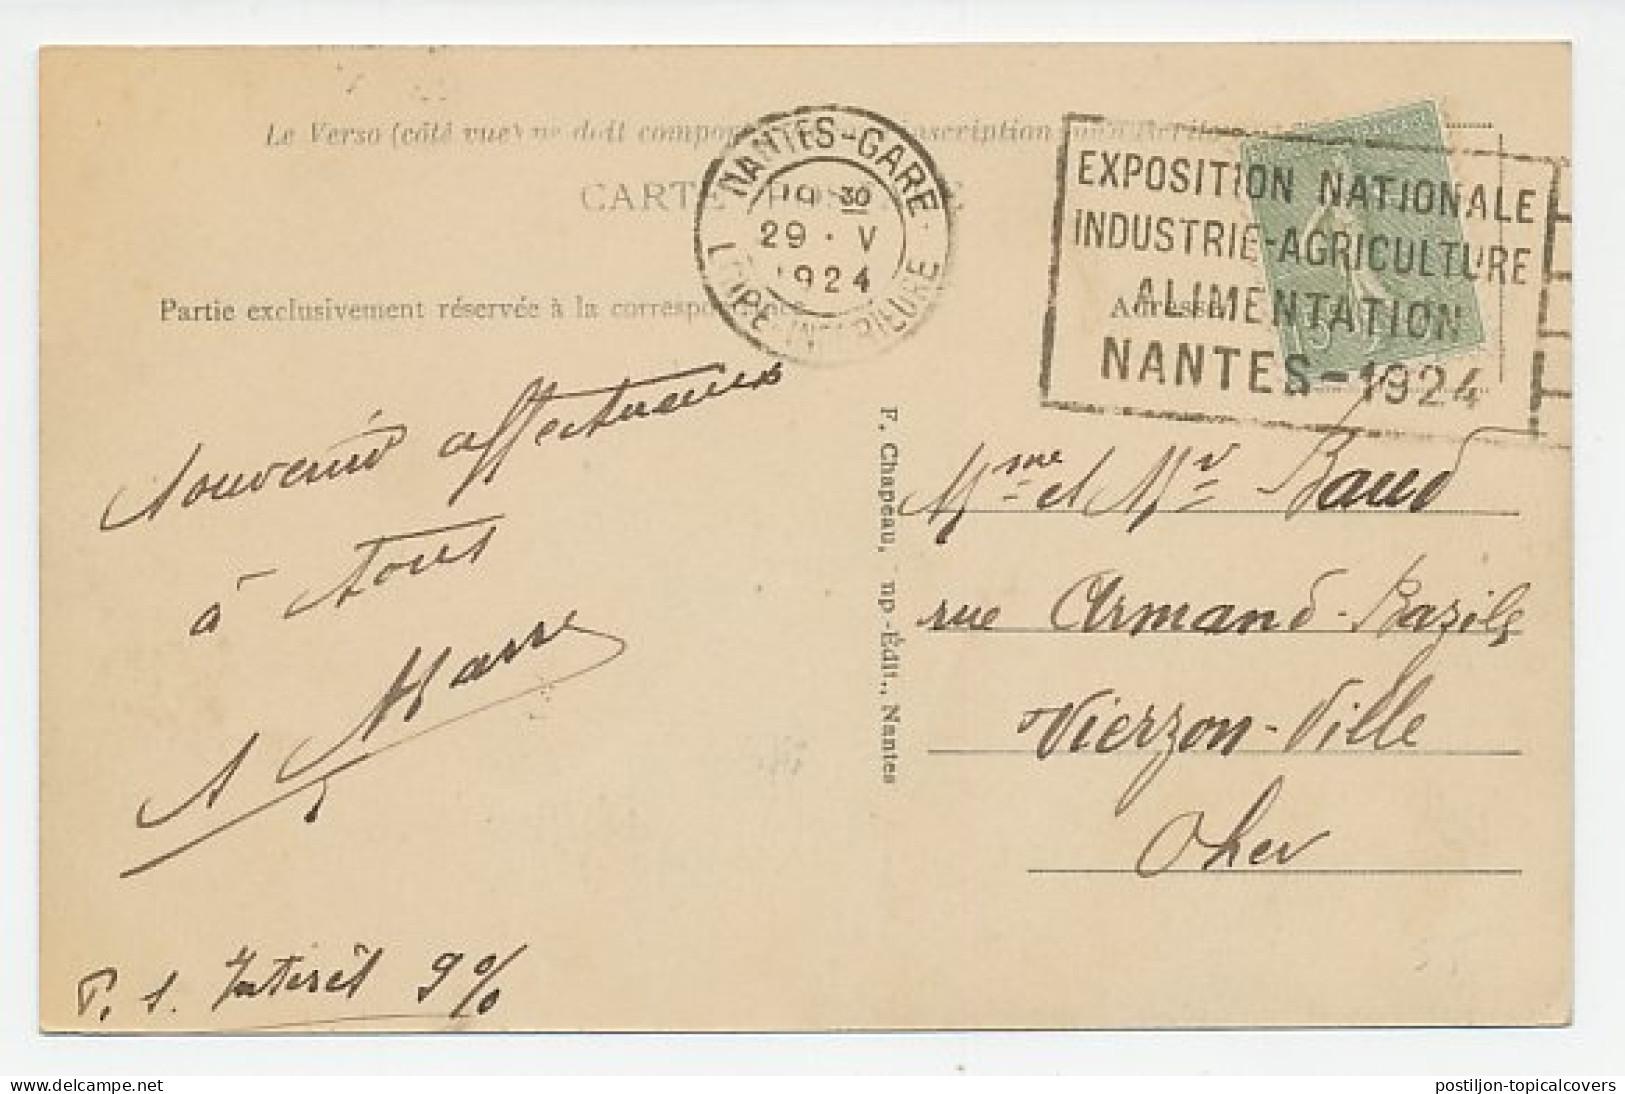 Le Verso (côté vue) ne doit comporter inscription
CARTE POSTALE
NANTES-GARE
19 30
29 · V
1924
LOIRE-INFERIEURE
EXPOSITION NATIONALE
INDUSTRIE-AGRICULTURE
ALIMENTATION
NANTES-1924
Partie exclusivement réservée à la correspondance
Adresse
Souvenir affectueux
à tous
F. Chapeau, Imp.-Édit., Nantes
Mme et Mr Baud
rue Armand-Bazile
Vierzon-Ville
Cher
P. S. Intérêt 9%
delcampe.net
postiljon-topicalcovers